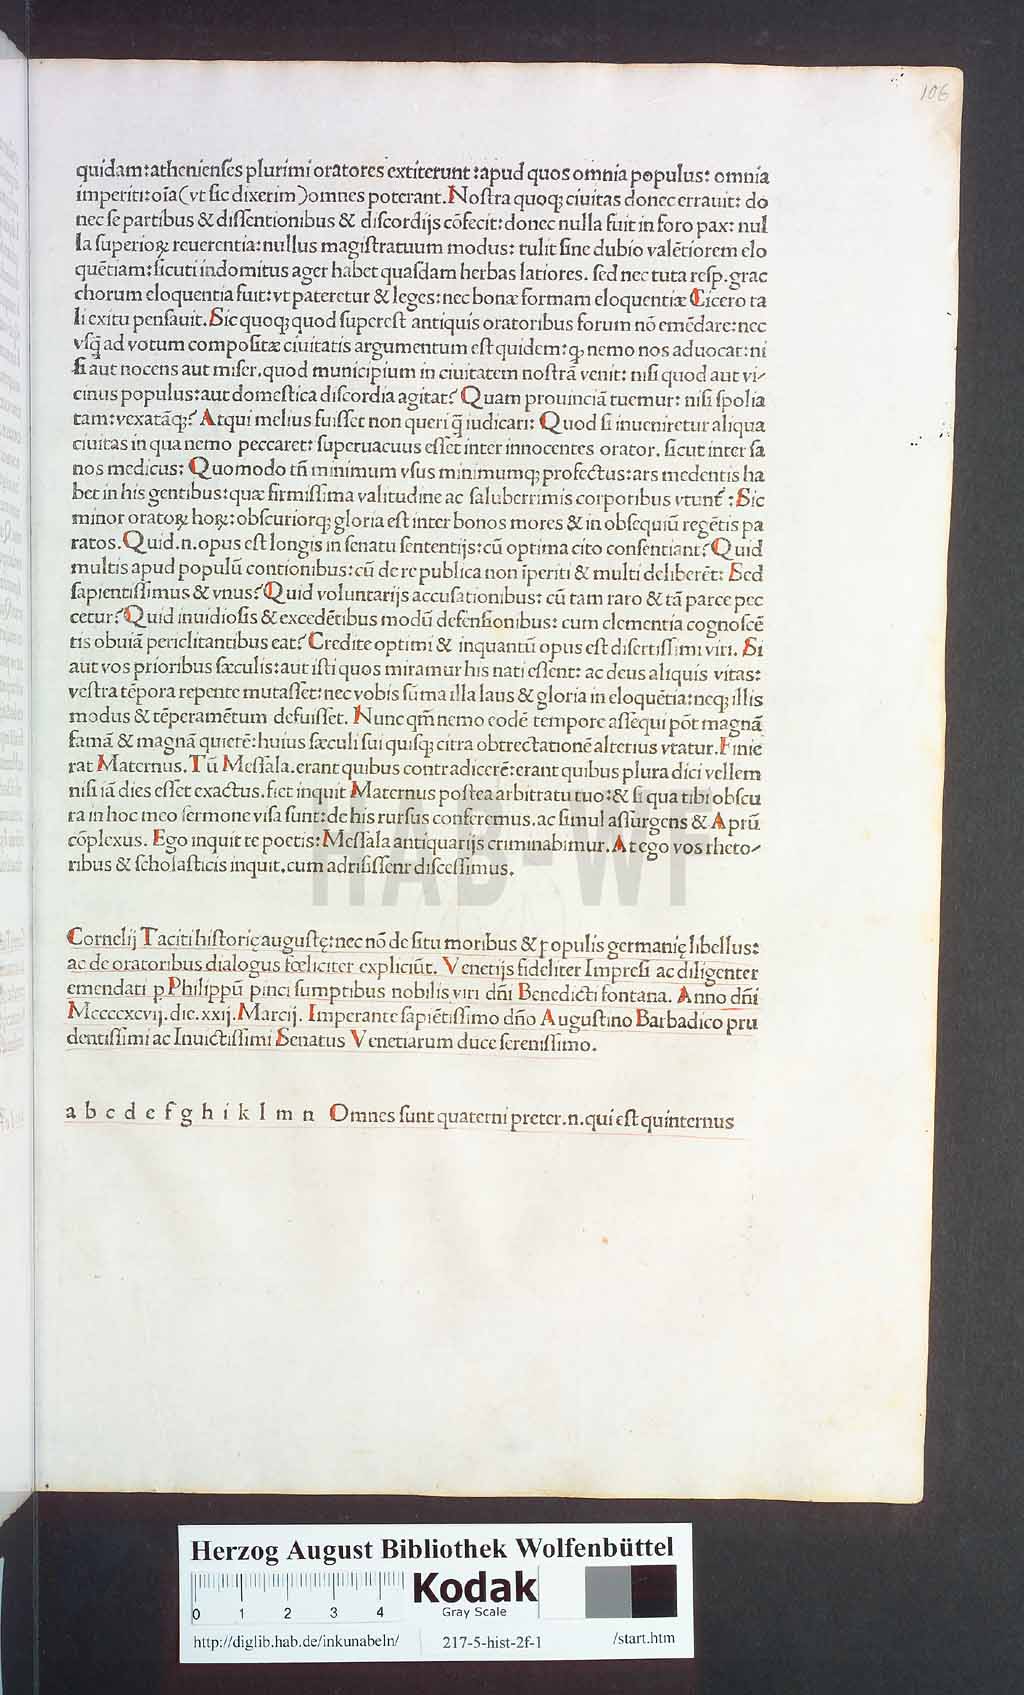 106
quidam:athenienses plurimi oratores extiterunt:apud quos omnia populus: omnia
imperiti:oĩa(vt sic dixerim)omnes poterant.Nostra quoqꝫ ciuitas donec errauit: do
nec se partibus & dissentionibus & discordijs cõfecit:donec nulla fuit in foro pax: nul
la superioꝝ reuerentia:nullus magistratuum modus: tulit sine dubio valẽtiorem elo
quẽtiam:sicuti indomitus ager habet quasdam herbas latiores. sed nec tuta resp.grac
chorum eloquentia fuit:vt pateretur & leges:nec bonæ formam eloquentiæ Cicero ta
li exitu pensauit.Sic quoqꝫ quod superest antiquis oratoribus forum nõ emẽdare:nec
vsq̃ ad votum compositæ ciuitatis argumentum est quidem:qꝫ nemo nos aduocat:ni
si aut nocens aut miser.quod municipium in ciuitatem nostrã venit: nisi quod aut vi-
cinus populus:aut domestica discordia agitat? Quam prouinciã tuemur: nisi spolia
tam:vexatãqꝫ? Atqui melius fuisset non queri q̃ iudicari: Quod si inueniretur aliqua
ciuitas in qua nemo peccaret: superuacuus esset inter innocentes orator. sicut inter sa
nos medicus: Quomodo tñ minimum vsus minimumqꝫ profectus:ars medentis ha
bet in his gentibus:quæ firmissima valitudine ac saluberrimis corporibus vtunt̃:Sic
minor oratoꝝ hoꝝ:obscuriorqꝫ gloria est inter bonos mores & in obsequiũ regẽtis pa
ratos.Quid.n.opus est longis in senatu sententijs:cũ optima cito consentiant? Quid
multis apud populũ contionibus:cũ de re publica non ĩperiti & multi deliberẽt: Sed
sapientissimus & vnus?Quid voluntarijs accusationibus: cũ tam raro & tã parce pec
cetur?Quid inuidiosis & excedẽtibus modũ defensionibus: cum clementia cognoscẽ
tis obuiã periclitantibus eat? Credite optimi & inquantũ opus est disertissimi viri. Si
aut vos prioribus sæculis:aut isti quos miramur his nati essent: ac deus aliquis vitas:
vestra tẽpora repente mutasset:nec vobis sũma illa laus & gloria in eloquẽtia:neqꝫ illis
modus & tẽperamẽtum defuisset. Nunc qm̃ nemo eodẽ tempore assequi põt magnã
famã & magnã quietẽ:huius sæculi sui quisqꝫ citra obtrectationẽ alterius vtatur.Finie
rat Maternus.Tũ Messala.erant quibus contradicerẽ:erant quibus plura dici vellem
nisi iã dies esset exactus.fiet inquit Maternus postea arbitratu tuo:& si qua tibi obscu
ra in hoc meo sermone visa sunt:de his rursus conferemus.ac simul assurgens & Aprũ
cõplexus. Ego inquit te poetis:Messala antiquarijs criminabimur.At ego vos rheto-
ribus & scholasticis inquit.cum adrisissent discessimus.
Cornelij Taciti historię augustę:nec nõ de situ moribus & populis germanię libellus:
ac de oratoribus dialogus fœliciter expliciũt. Venetijs fideliter Impresi ac diligenter
emendati ꝑ Philippũ pinci sumptibus nobilis viri dñi Benedicti fontana. Anno dñi
Mccccxcvij.die.xxij.Marcij. Imperante sapiẽtissimo dño Augustino Barbadico pru
dentissimi ac Inuictissimi Senatus Venetiarum duce serenissimo.
a b c d e f g h i k l m n Omnes sunt quaterni preter.n.qui est quinternus
HAB-WF
Herzog August Bibliothek Wolfenbüttel
0 1 2 3 4
Kodak
Gray Scale
http://diglib.hab.de/inkunabeln/ 217-5-hist-2f-1 /start.htm